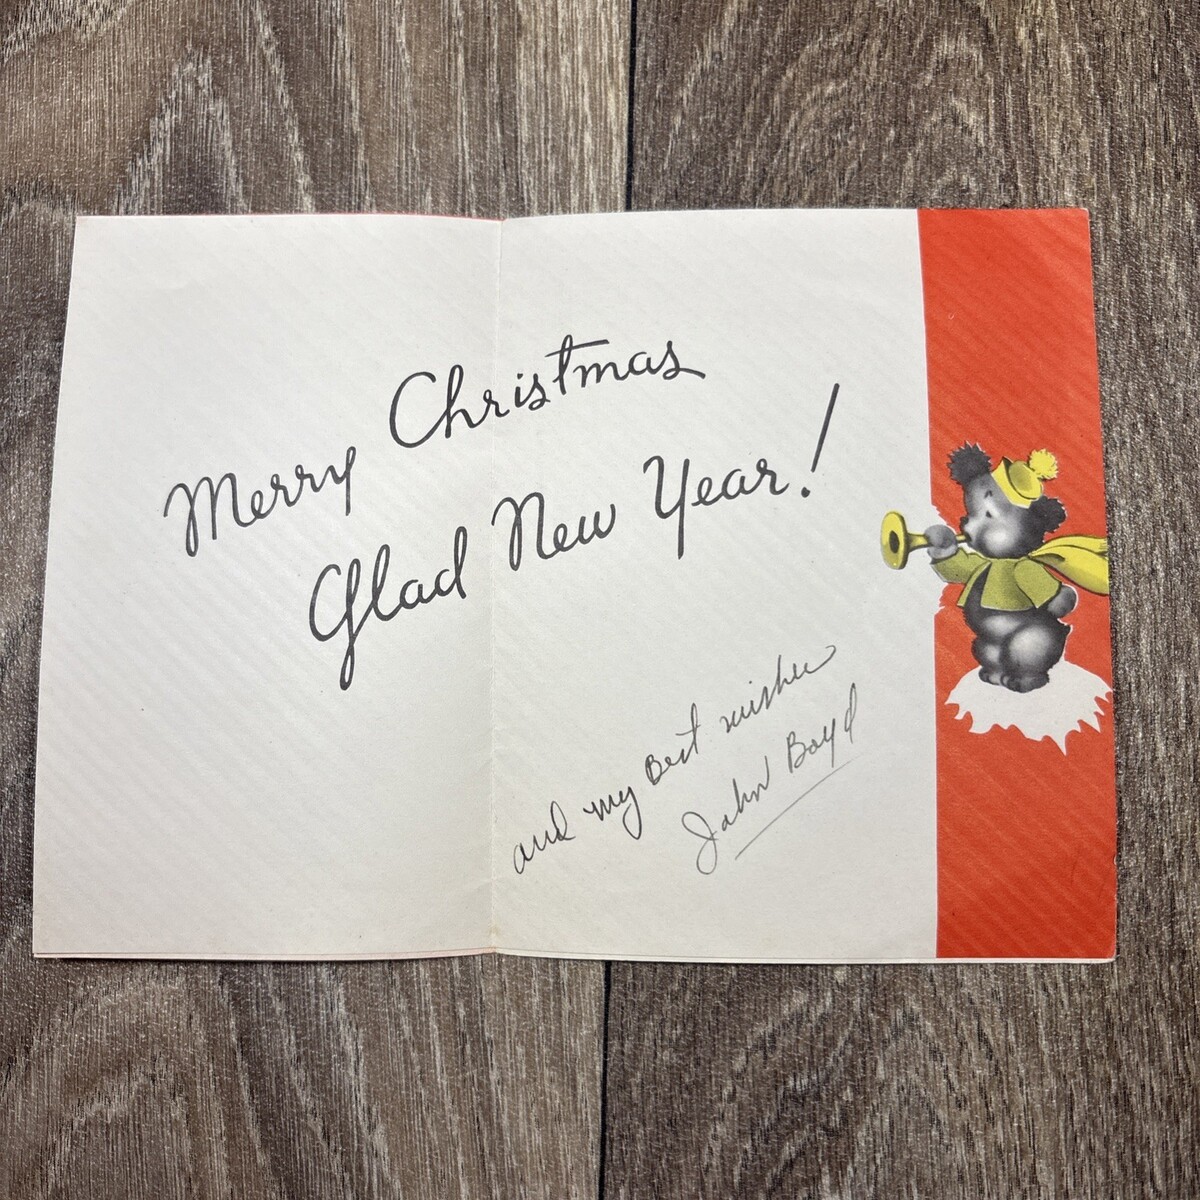 Merry Christmas
Glad New Year!
and my Best wishes
John Boyd